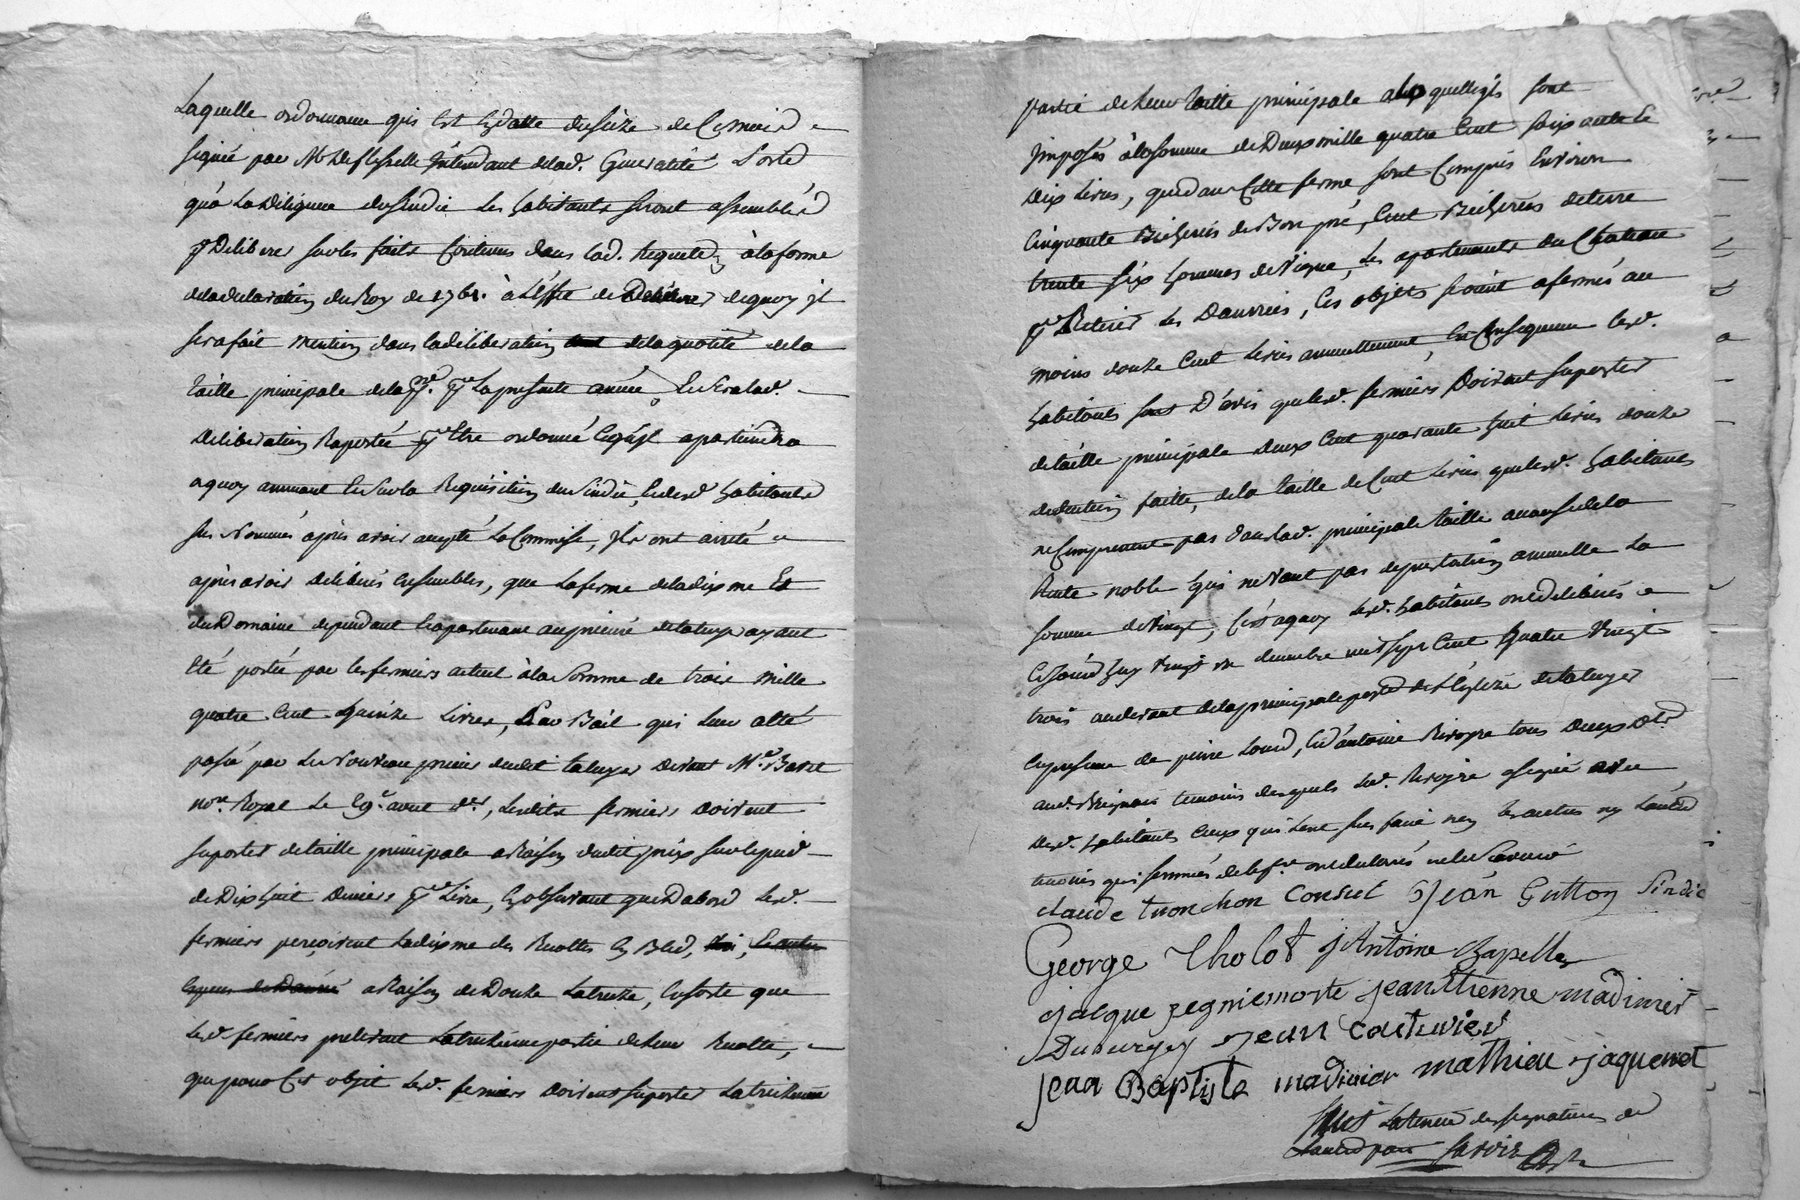 Laquelle ordonnance qui Est En datte du seize de Ce mois
signée par Mr De flesselle Intendant de lad. Generalité Porte
qu'a La Diligence du sindic Les habitants seront assemblés
pr Deliberer sur les faits Contenus dans lad. Requete, à la forme
de la declaration du Roy de à L'effet de de quoy il
sera fait mention dans la deliberation de la quotité de la
taille principale de la psse. pr La presente année, Et sera lad.
Deliberation Raportée pr Etre ordonné Ce qu'il apartiendra
a quoy Et sur la Requisition du Sindic, Lesd habitants
sus Nommés après avoir accepté La Commise, Ils ont arrété
après avoir Deliberés ensembles, que La ferme de la dixme Et
du Domaine dependant Et apartenant au prieuré de taluyer ayant
Eté portée par les fermiers actuel à la Somme de trois mille
quatre Cent quinze Livres, Par Bail qui Leur a Eté
passé par Le Nouveau prieur dudit taluyer Devant Me
nore. Royal Le 29e. avril der, Lesdits fermiers Doivent
suporter de taille principale a Raison dudit prix sur le pied
de Dix huit Deniers pr Livre, En observant que D'abord Lesd.
fermiers perçoivent La dixme des Recoltes En Bled,
a Raison de Douze La treize, En sorte que
Lesd fermiers prelevent La treizieme partie de leur Recolte,
que pour Cet objet Lesd. fermiers Doivent suporter La treizieme
partie de Leur taille principale a la quelle ils sont
Imposés à la somme de Deux mille quatre Cent soixante Et
Dix Livres, que dans Cette ferme sont Compris Environ
Cinquante Bicherées de Bon pré, Cent Bicherées de terre
trente six hommes de Vigne, Les apartements du Chateau
pr Retirer Les Danrées, Ces objets seroient afermés au
moins douze Cent Livres annuellement, En Consequence Lesd.
habitants sont D'avis que Lesd. fermiers Doivent suporter
de taille principale Deux Cent quarante huit Livres douze
deduction faitte, de la taille de Cent Livres que Lesd. habitants
ne Comprennent pas dans lad. principale taille a cause de la
Rente noble qui ne Vaut pas deportation annuelle La
somme de Vingt, C'est a quoy Lesd. habitants ont deliberés
Cejourd'huy Vingt un decembre mil sept Cent Quatre Vingt
trois au devant de la principale porte de L'Eglize de taluyer
En presence de pierre Lourd, Et d'antoine tous Deux
aud. temoins desquels Led. a signé avec
Desd. habitants Ceux qui Lont sceu faire non les autres ny L'autre
temoin qui sommés de le fre. ont declarés ne le scavoir
claude tronchon Consul Jean Gutton Sindic
George tholot Antoine Chapelle
Jacque pegniemorte jean Etienne madinier
Duburgey Jean Couturier
jean Baptiste madinier mathieu jaquemet
Suit La teneur des signatures de